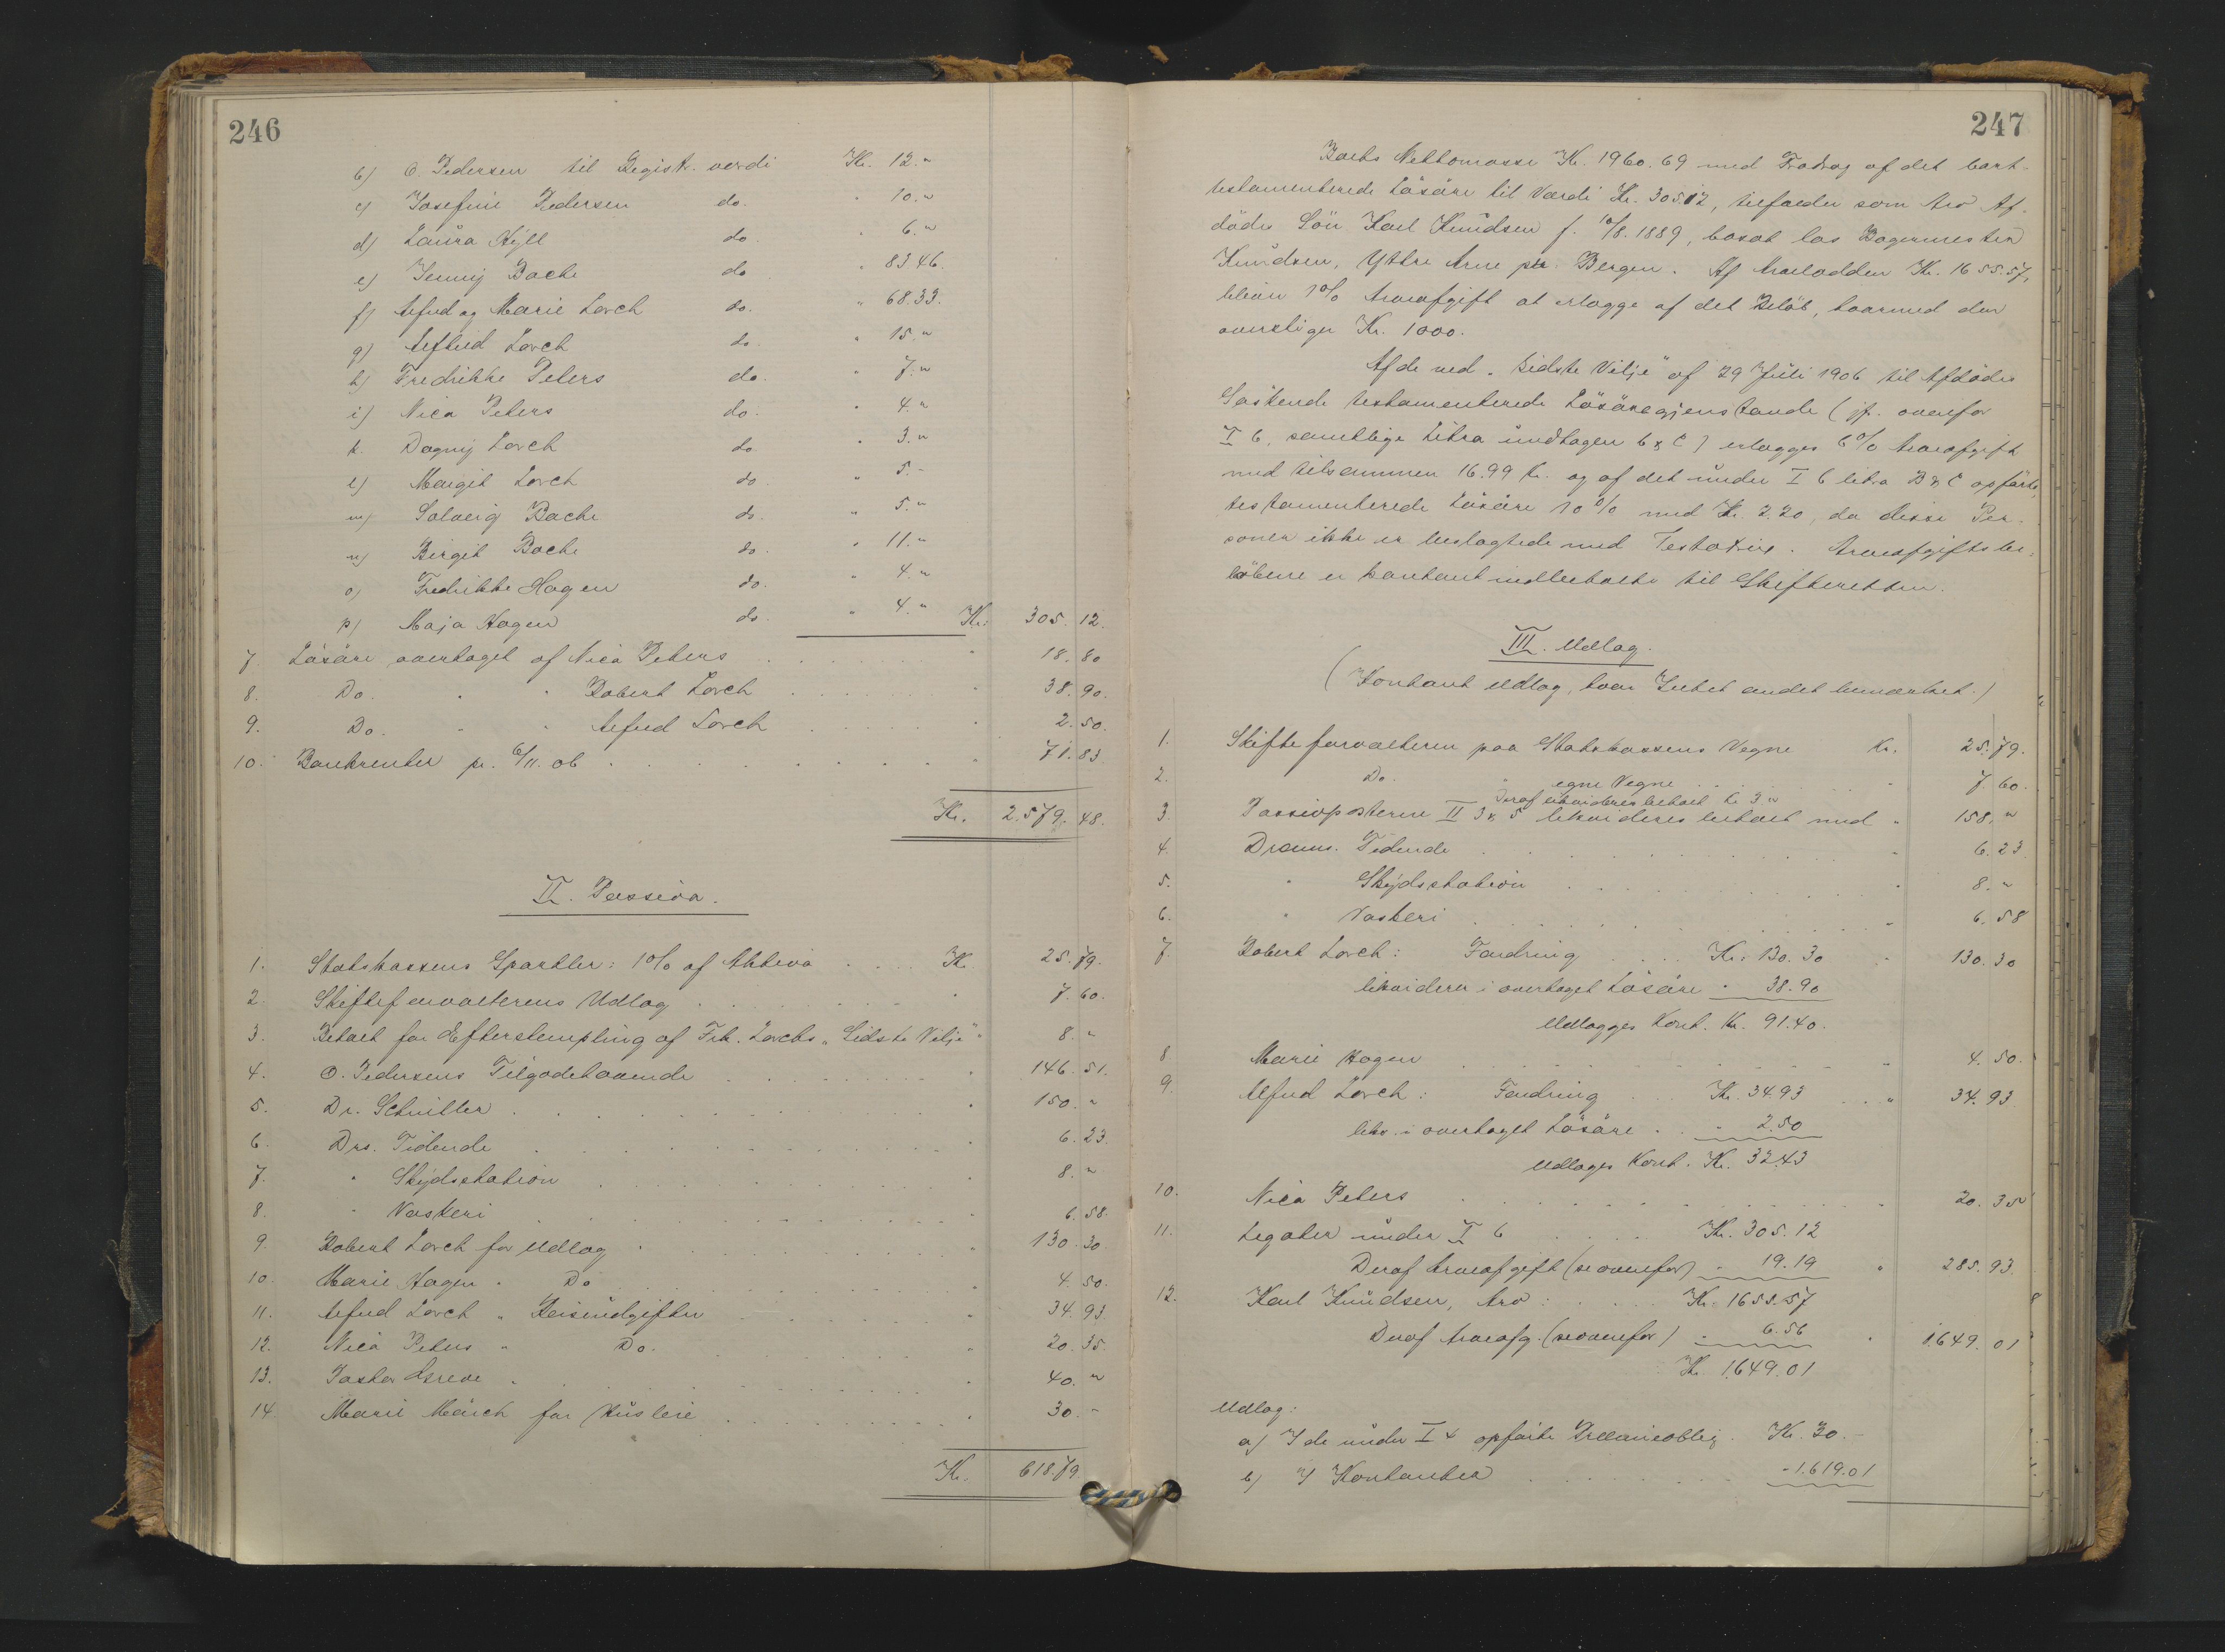 246
b) O. Pedersen til Registr. værdi Kr. 12."
c) Josefine Pedersen do. " 10."
d) Laura Kyll do. " 6."
e) Jenny Bache do " 83 46.
f) Alfred og Marie Lorch do. " 68.33.
g) Alfred Lorch do. " 15."
h) Fredrikke Peters do. " 7."
i) Nica Peters do. " 4."
k. Dagny Lorch do. " 3."
l) Margit Lorch do " 5.-
m) Solveig Bache do. " 5."
n) Birgit Bache do. " 11."
o) Fredrikke Hagen do. " 4."
p) Maja Hagen do. " 4." Kr: 305. 12.
7. Løsøre overtaget af Nica Peters " 18. 80
8. Do. " " Robert Lorch " 38. 90.
9. Do. " " Alfred Lorch " 2. 50.
10. Bankrenter pr. 6/11. 06 " 71. 83
Kr. 2.579. 48.
II. Passiva.
1. Statskassens Sportler: 1% af Aktiva Kr. 25. 79.
2. Skifteforvalterens Udlæg " 7. 60.
3. Betalt for Efterstempling af Frk. Lorchs „Sidste Vilje" " 8. "
4. O. Pedersens Tilgodehavende " 146. 51.
5. Dr. " 150. "
6. Drs. Tidende 6. 23.
7. " Skydsstation " 8. "
8. " Vaskeri " 6. 58.
9. Robert Lorch for Udlæg " 130. 30
10. Marie Hagen " Do " 4. 50.
11. Alfred Lorch " Reiseudgifter " 34. 93.
12. Nica Peters " Do. " 20. 35.
13. Pastor Greve " 40. "
14. Marie March for Husleie " 30. -
Kr. 618. 79.
247
Boets Nettomasse Kr. 1960.69 med Fradrag af det bort-
testamenterede Løsøre til Værdi Kr. 305.12, tilfalder som Arv Af-
dødes Søn Karl Knudsen f. 10/8. 1889, bosat hos Bagermester
Knudsen, Yttre Arne pr. Bergen. Af Arvelodden Kr. 1655.57,
bliver 1% Arveafgift at erlægge af det Beløb, hvormed den
overstiger Kr. 1000.
Af de ved „Sidste Vilje" af 29 Juli 1906 til Afdødes
Søskende testamenterede Løsøregjenstande (jf. ovenfor
I 6, samtlige Litra undtagen b & c) erlægges 6% Arveafgift
med tilsammen 16.99 Kr. og af det under I 6 litra B & C opførte,
testamenterede Løsøre 10% med Kr. 2.20, da disse Per-
soner ikke er beslægtede med Testatrix. Arveafgiftsbe-
løbene er kontant indbetalte til Skifteretten.
III. Udlæg.
(Kontant Udlæg, hvor Intet andet bemærket.)
1. Skifteforvalteren paa Statskassens Vegne Kr. 25. 79.
2. Do. " egne Vegne " 7. 60.
Deraf likvideres betalt Kr 3."
3. Passivposterne II 3 & 5 likvideres betalt med " 158. "
4. Dramm. Tidende " 6. 23
5. " Skydsstation " 8. "
6. " Vaskeri " 6. 58
7. Robert Lorch: Fordring Kr: 130. 30 " 130. 30
likviderer i overtaget Løsøre " 38. 90
Udlægges Kont. Kr. 91.40.
8. Marie Hagen " 4. 50.
9. Alfred Lorch: Fordring Kr. 34.93 " 34. 93
likv. i overtaget Løsøre " 2.50
Udlæges Kont. Kr. 32.43
10. Nica Peters " 20. 35
11. Legater under I 6 Kr. 305. 12
Deraf Arveafgift (se ovenfor) " 19.19 " 285. 93.
12. Karl Knudsen, Arv: Kr: 1655.57
Deraf Arveafg. (se ovenfor) " 6.56 " 1649. 01
Kr. 1.649.01
Udlæg:
a) I de under I 4 opførte Præmieoblig. Kr. 30.-
b) I Kontanter - 1.619.01